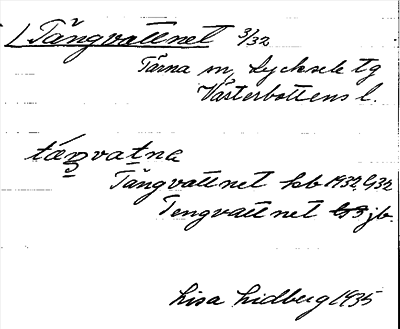 Tängvattnet 3/32
Tärna sn, Lycksele tg
Västerbottens l.
Tängvattnet kb 1932
Tengvattnet jb.
Lisa Lidberg 1935